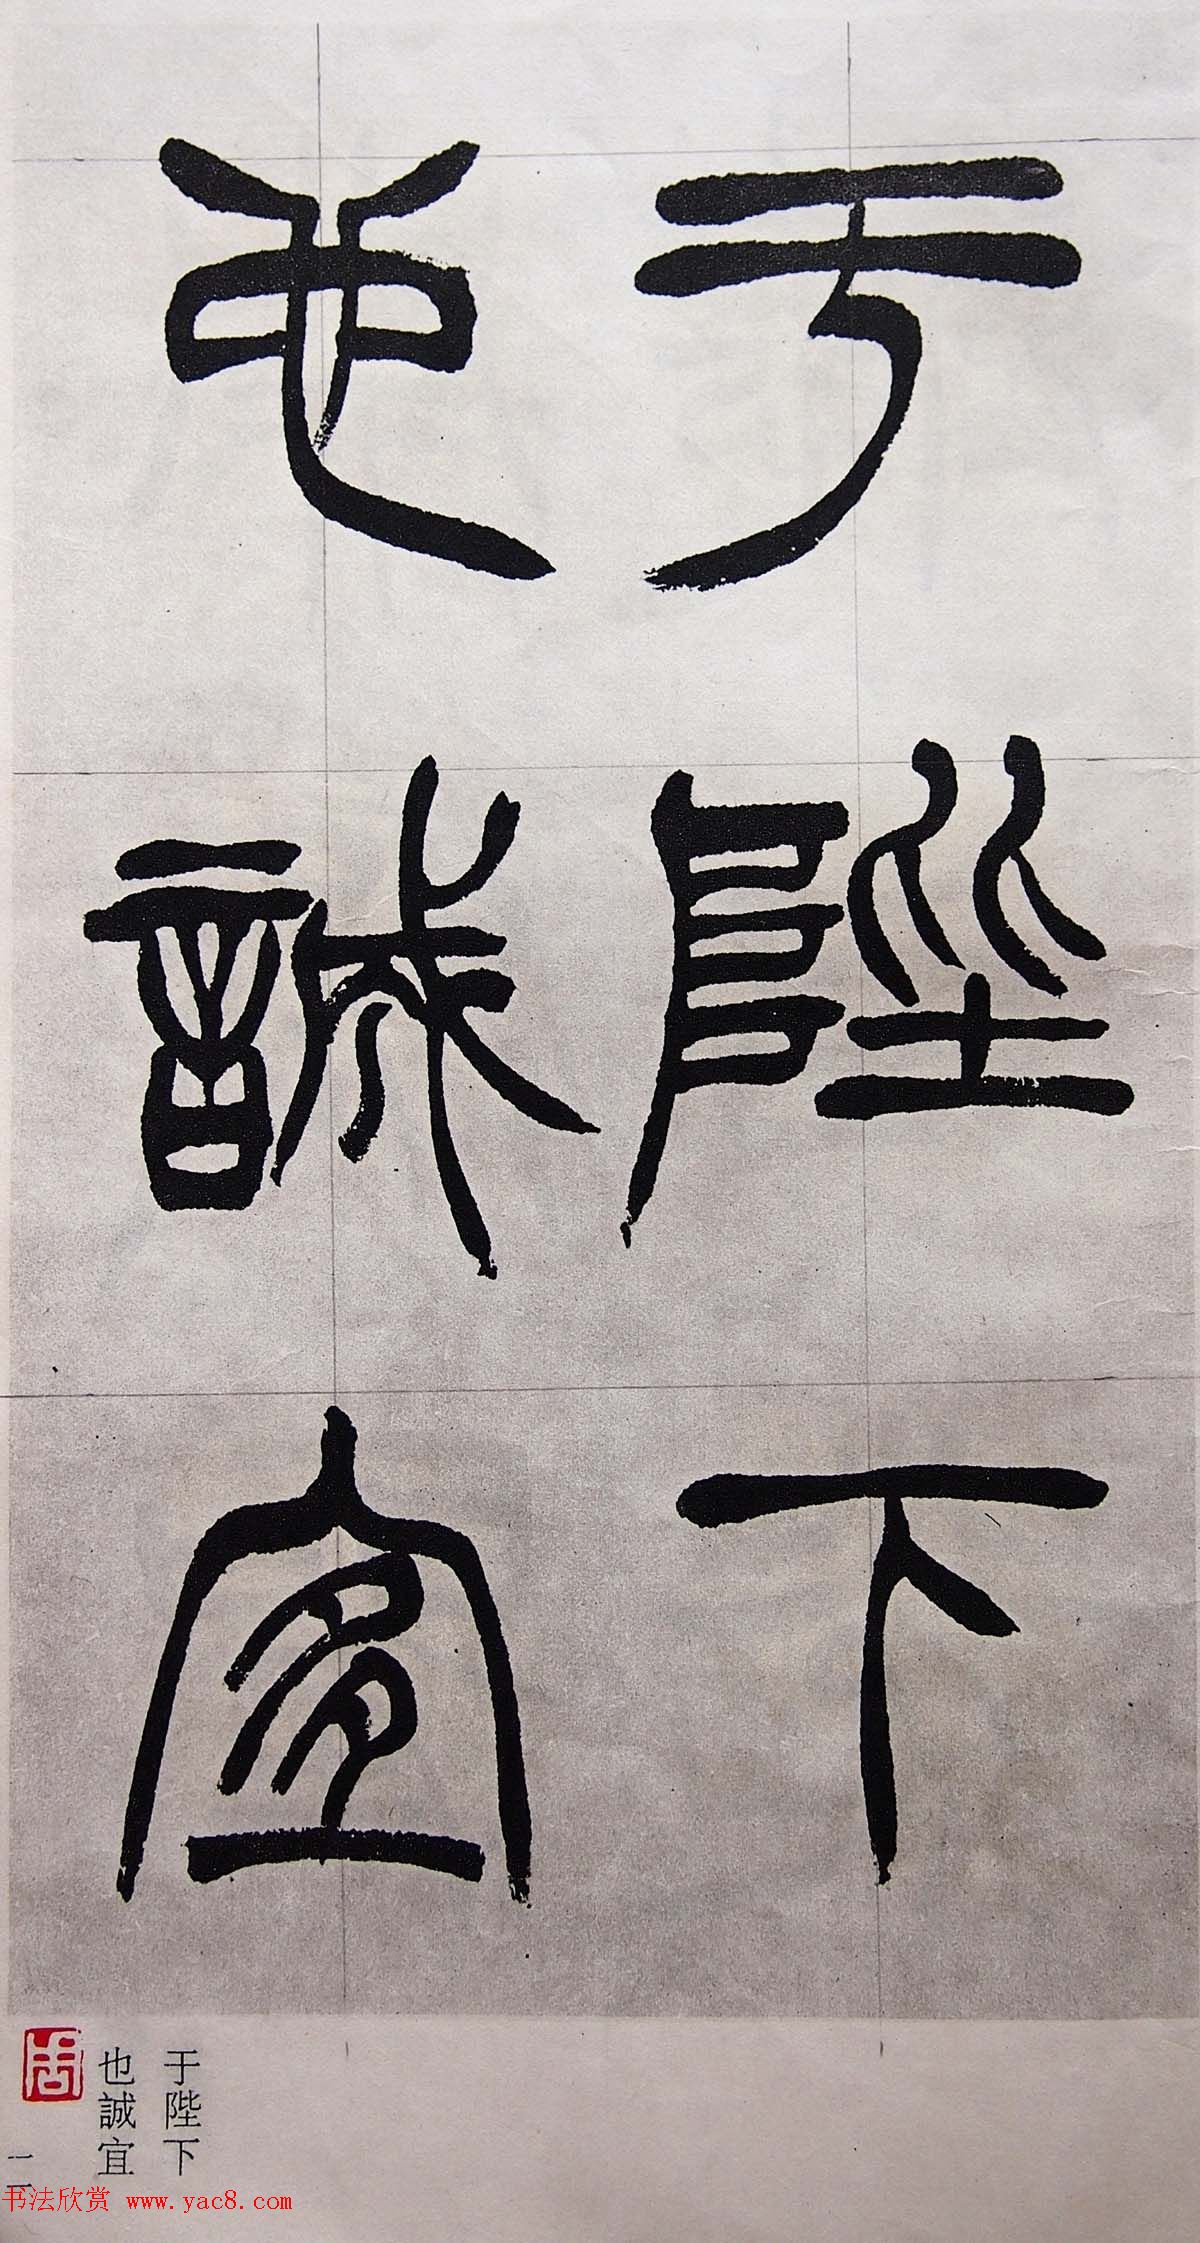 于陛下
也誠宜
于陛下
也誠宜
二
书法欣赏 www.yac8.com